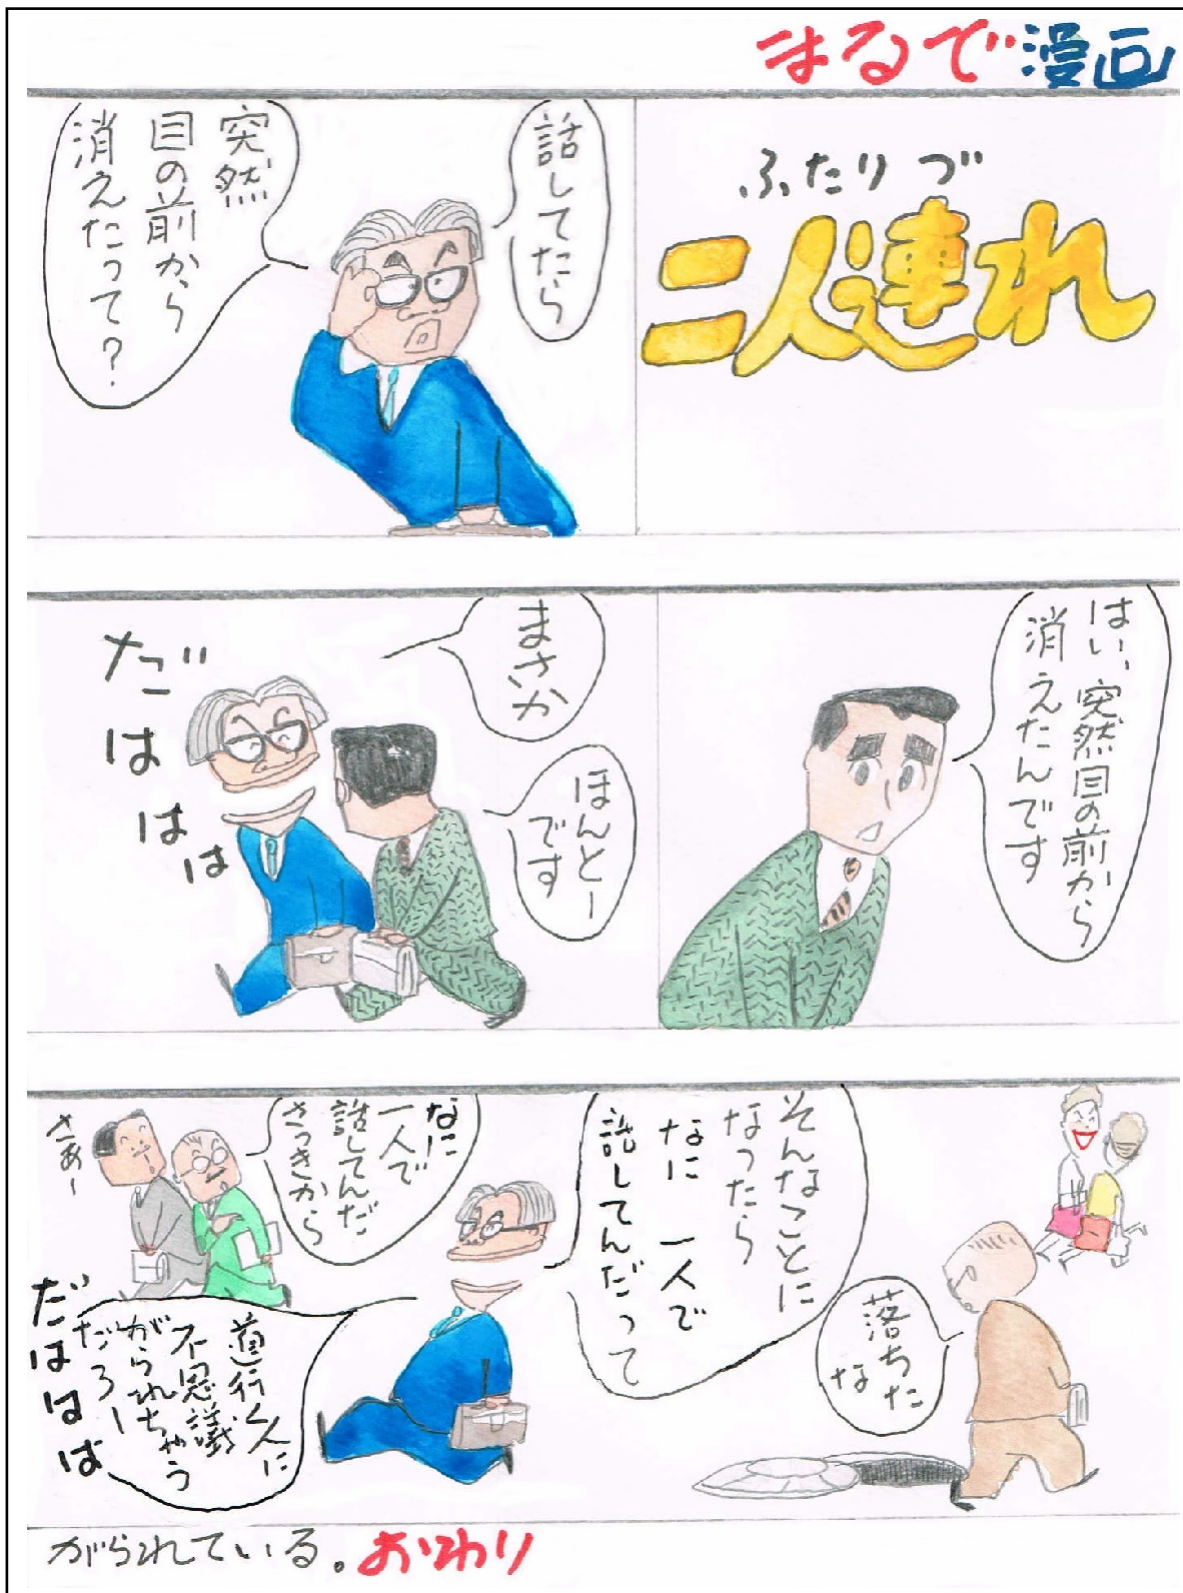 まるで漫画
ふたりづ
二人連れ
話してたら
突然
目の前から
消えたって?
はい、突然目の前から
消えたんです
まさか
ほんとー
です
だははは
落ちた
な
そんなことに
なったら
なに 一人で
話してんだって
なに
一人で
話してんだ
さっきから
さあー
道行く人に
不思議
がられちゃう
だろー
だははは
がられている。おわり